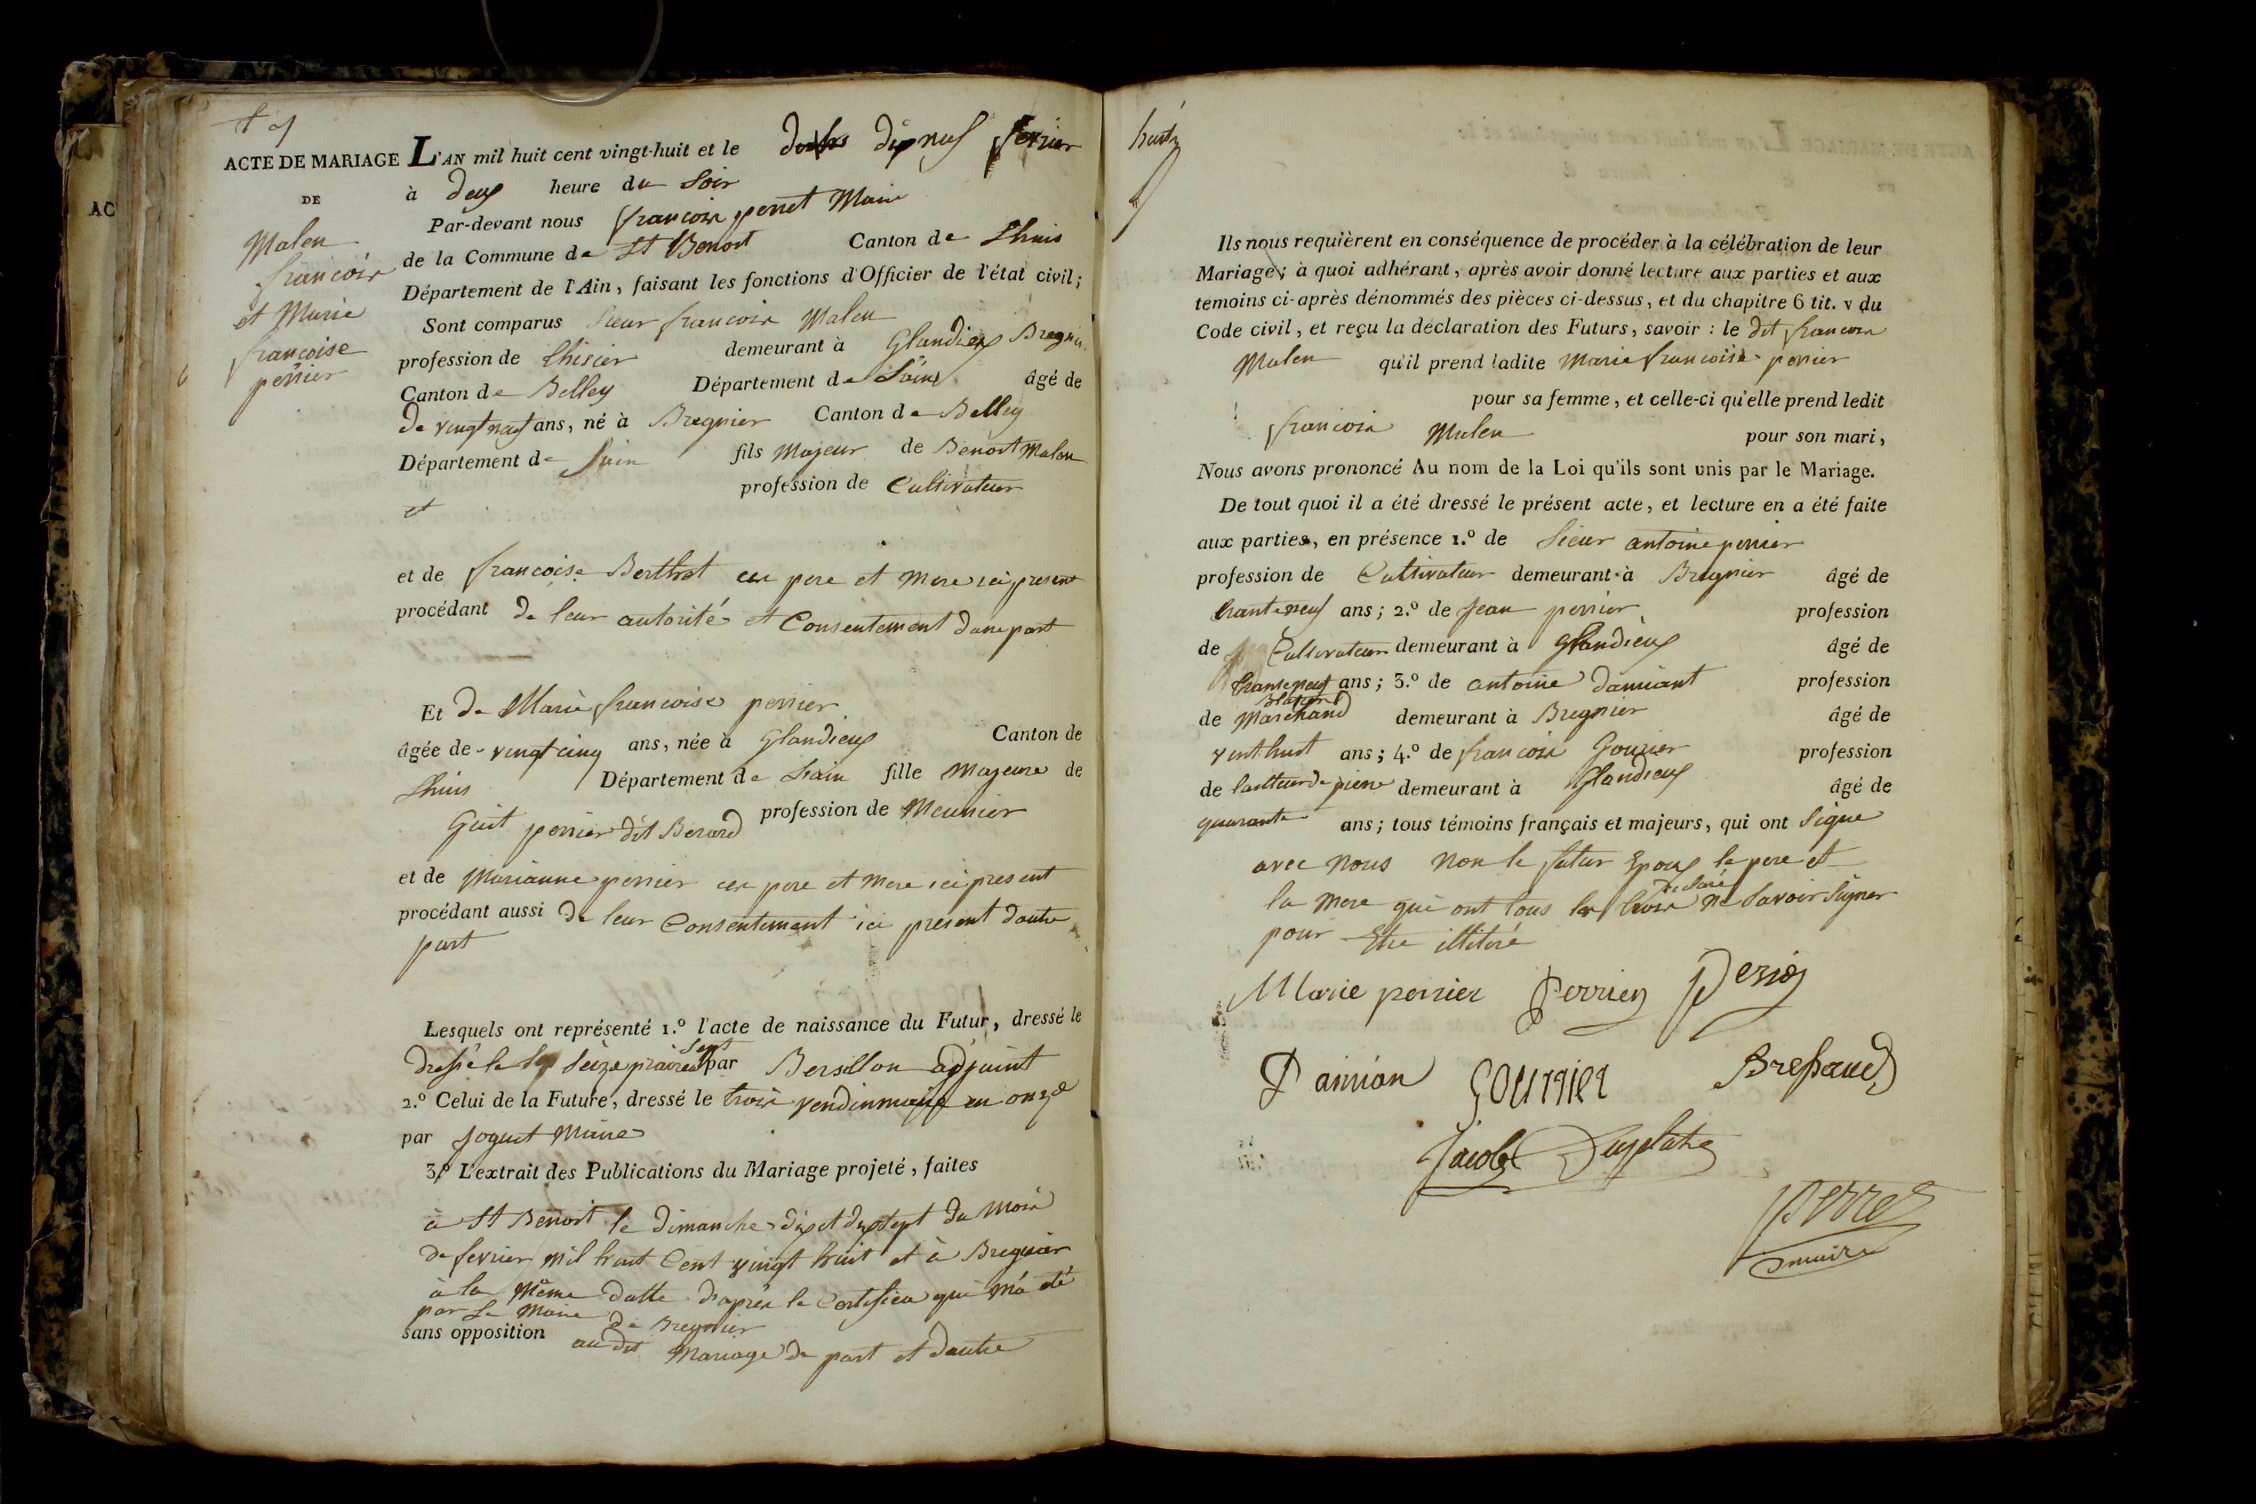 ACTE DE MARIAGE
DE
Malen
francois
et Marie
francoise
perrier
L'AN mil huit cent vingt-huit et le dix neuf fevrier
à deux heure du Soir
Par-devant nous francois perret Maire
de la Commune de St Benoit Canton de Lhuis
Département de l'Ain, faisant les fonctions d'Officier de l'état civil;
Sont comparus Sieur francois Malen
profession de demeurant à Glandieux Bregnier
Canton de Belley Département de Lain âgé de
de vingt neuf ans, né à Bregnier Canton de Belley
Département de Lain fils Majeur de Benoit Malen
et profession de Cultivateur
et de francoise Berthet ces pere et Mere ici present
procédant de leur autorité et Consentement dune part
Et de Marie francoise perrier
âgée de vingt cinq ans, née à Glandieux Canton de
Lhuis Département de Lain fille Majeure de
perrier dit Berard profession de Meunier
et de Marianne perrier ces pere et Mere ici present
procédant aussi de leur Consentement ici present dautre
part
Lesquels ont représenté 1.º l'acte de naissance du Futur, dressé le
dressé le seize prairial sept par adjoint
2.º Celui de la Future, dressé le trois vendinmaire an onze
par Joguet Maire
3.º L'extrait des Publications du Mariage projeté, faites
à St Benoit le dimanche dix et dix sept du Mois
de fevrier Mil huit Cent vingt huit et à Bregnier
à la Même datte daprés le Certificat qui má été
par Le Maire de Bregnier
sans opposition au dit Mariage de part et dautre
huit
Ils nous requièrent en conséquence de procéder à la célébration de leur
Mariage; à quoi adhérant, après avoir donné lecture aux parties et aux
temoins ci-après dénommés des pièces ci-dessus, et du chapitre 6 tit. v du
Code civil, et reçu la déclaration des Futurs, savoir : le dit francois
Malen qu'il prend ladite Marie francoise perrier
pour sa femme, et celle-ci qu'elle prend ledit
francois Malen pour son mari,
Nous avons prononcé Au nom de la Loi qu'ils sont unis par le Mariage.
De tout quoi il a été dressé le présent acte, et lecture en a été faite
aux parties, en présence 1.º de Sieur antoine perrier
profession de Cultivateur demeurant à Bregnier âgé de
trante neuf ans; 2.º de jean perrier profession
de Cultivateur demeurant à Glandieux âgé de
trante neuf ans; 3.º de antoine damiant profession
de Marchand demeurant à Bregnier âgé de
vint huit ans; 4.º de francois Gourier profession
de tailleur de pierre demeurant à Glandieux âgé de
quarante ans; tous témoins français et majeurs, qui ont Signe
avec nous non le futur Epoux le pere et
la Mere qui ont tous les trois declaré ne Savoir Signer
pour Etre illitéré
Marie perrier Perrier
Damian gourrier Bressaud
Jacob Duplatre
Perret
maire